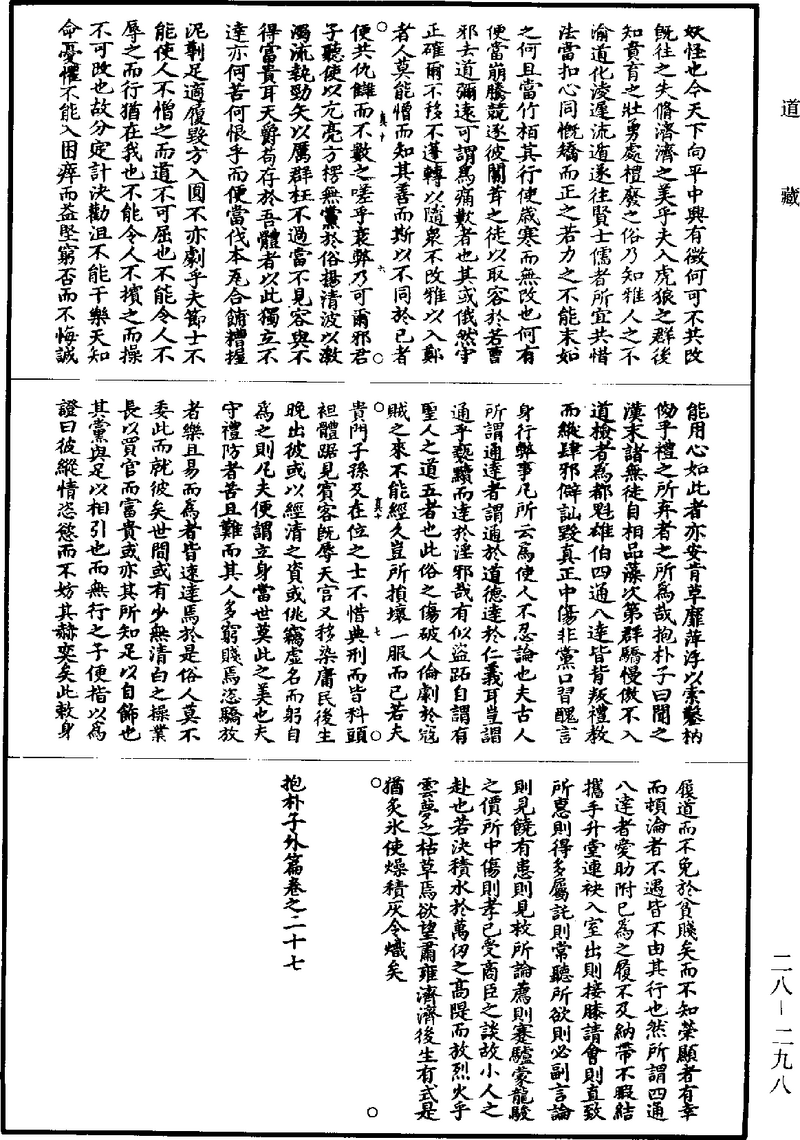 道藏
妖怪也今天下向平中興有徵何可不共改
既往之失脩濟濟之美乎夫入虎狼之群後
知賁育之壯勇處禮廢之俗乃知雅人之不
渝道化淩遲流遁遂往賢士儒者所宜共惜
法當扣心同慨矯而正之若力之不能末如
之何且當竹栢其行使歲寒而無改也何有
便當崩騰競逐彼闒茸之徒以取容於若曹
邪去道彌遠可謂為痛歎者也其或俄然守
正確爾不移不蓬轉以隨衆不改雅以入鄭
者人莫能憎而知其善而斯以不同於己者
便共仇讎而不數之嗟乎衰弊乃可爾邪君
子聽使以亢亮方楞無黨於俗揚清波以激
濁流執勁矢以厲群枉不過當不見容與不
得富貴耳天爵苟存於吾體者以此獨立不
達亦何苦何恨乎而便當伐本瓦合餔糟握
泥剿足適履毀方入圓不亦劇乎夫節士不
能使人不憎之而道不可屈也不能令人不
辱之而行猶在我也不能令人不擯之而操
不可改也故分定計決勸沮不能干樂天知
命憂懼不能入困瘁而益堅窮否而不悔誠
能用心如此者亦安肯草靡萍浮以索鑿枘
俲乎禮之所弃者之所為哉抱朴子曰聞之
漢末諸無徒自相品藻次第群驕慢傲不入
道檢者為都魁雄伯四通八達皆背叛禮教
而縱肆邪僻訕毀真正中傷非黨口習醜言
身行弊事凡所云為使人不忍論也夫古人
所謂通達者謂通於道德達於仁義耳豈謂
通乎褻黷而達於淫邪哉有似盜跖自謂有
聖人之道五者也此俗之傷破人倫劇於寇
賊之來不能經久豈所損壞一服而已若夫
貴門子孫及在位之士不惜典刑而皆科頭
袒體踞見賓客既辱天官又移染庸民後生
晚出彼或以經清之資或佻竊虛名而躬自
為之則凡夫便謂立身當世莫此之美也夫
守禮防者苦且難而其人多窮賤焉恣驕放
者樂且易而為者皆速達焉於是俗人莫不
委此而就彼矣世間或有少無清白之操業
長以買官而富貴或亦其所知足以自飾也
其黨與足以相引也而無行之子便指以為
證曰彼縱情恣慾而不妨其赫奕矣此敕身
履道而不免於貧賤矣而不知榮顯者有幸
而頓淪者不遇皆不由其行也然所謂四通
八達者愛助附己為之履不及納帶不暇結
攜手升堂連袂入室出則接膝請會則直致
所惠則得多屬託則常聽所欲則必副言論
則見饒有患則見救所論薦則蹇驢蒙龍駿
之價所中傷則孝己受商臣之談故小人之
赴也若決積水於萬仞之高隄而放烈火乎
雲夢之枯草焉欲望肅雍濟濟後生有式是
猶炙氷使燥積灰令熾矣
抱朴子外篇卷之二十七
二八—二九八